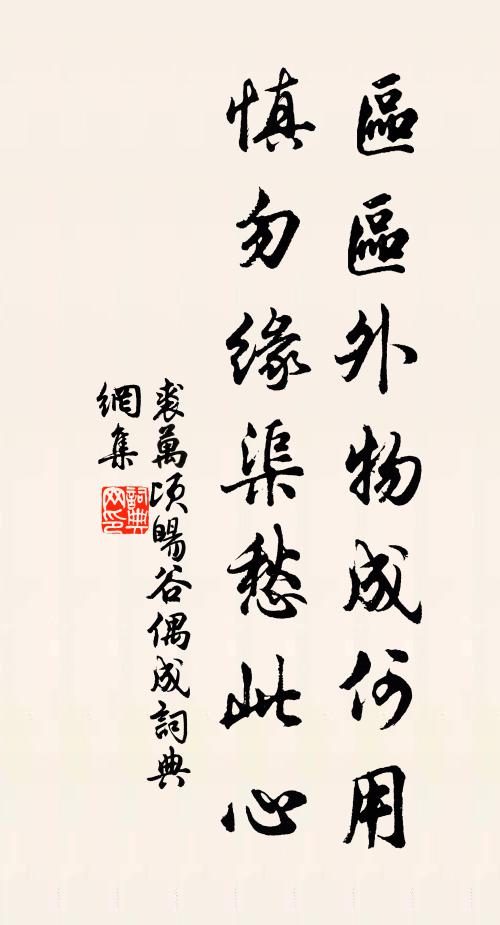 區區外物成何用
慎勿緣渠愁此心
裘萬頃暘谷偶成詞典
網集
詞典網印